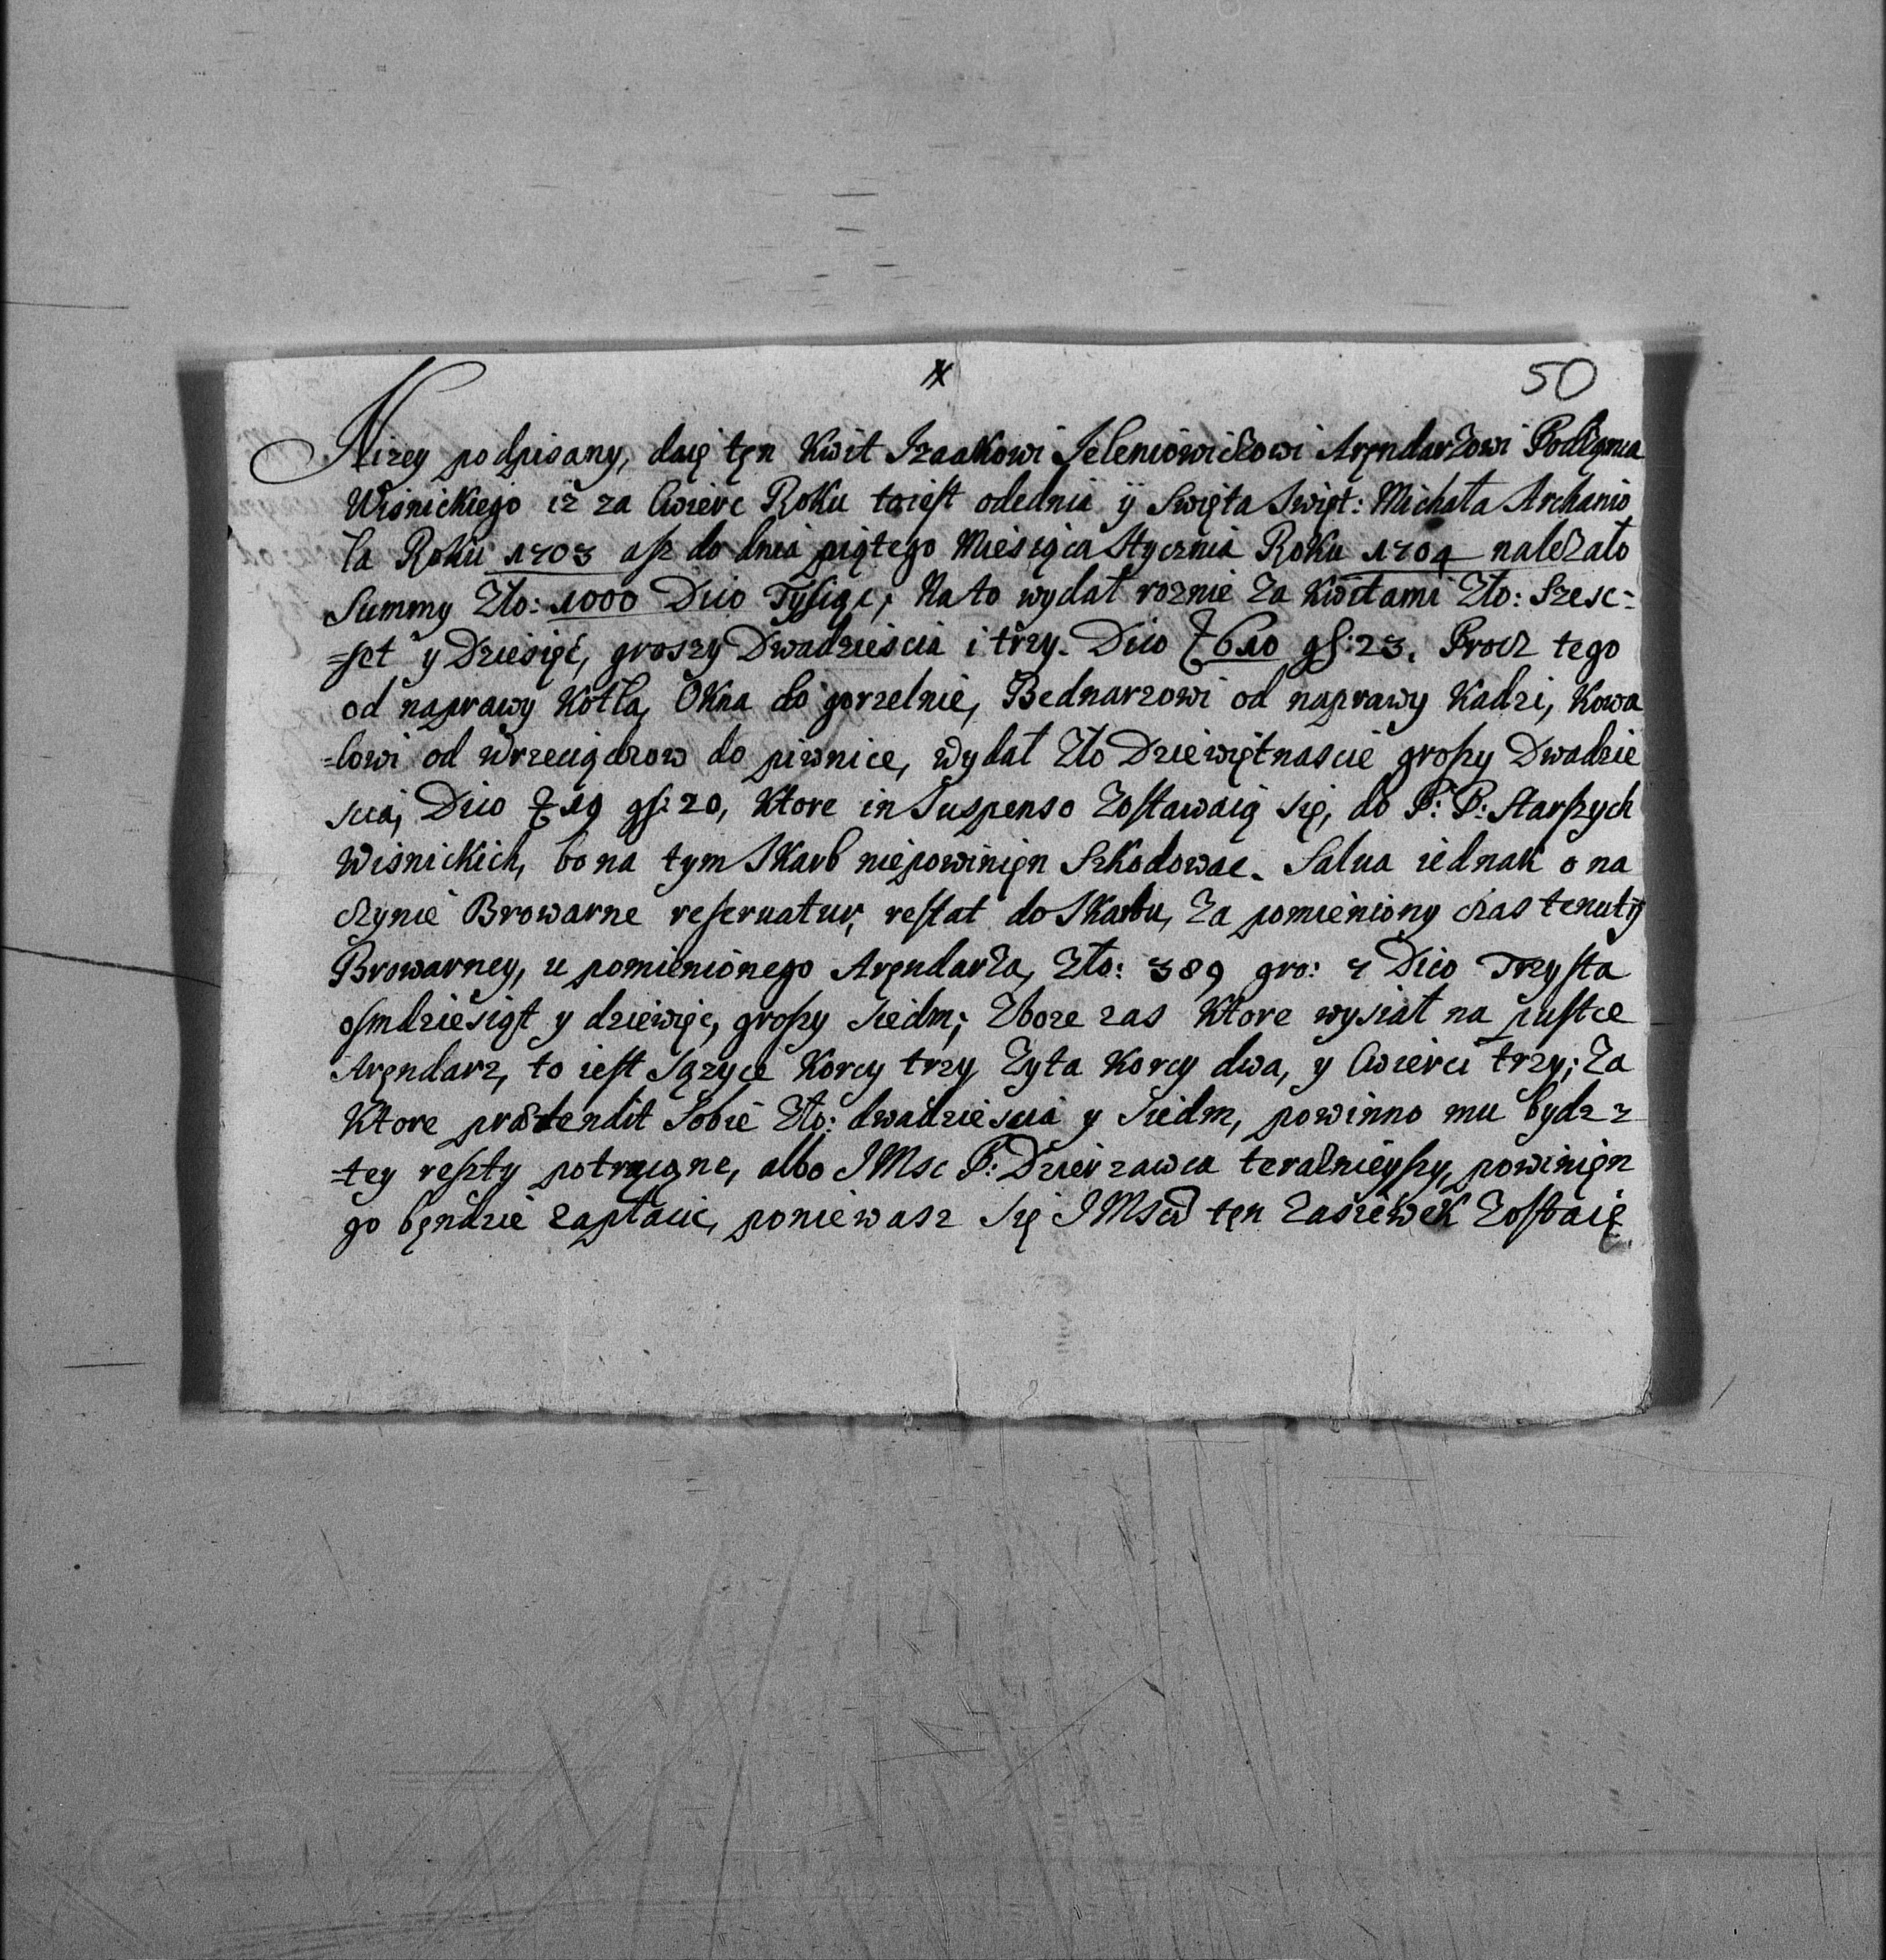 50
Nizey podpisany, daię tęn Kwit Izaakowi Jeleniowiczowi Aręndarzowi Podłęmia
Wisnickiego iz za Cwierc Roku toiest odednia ÿ Swięta Swięt: Michała Archanio
ła Roku 1703 asz do dnia piątego Miesiąca Stycznia Roku 1704 nalezało
Summy Zło: 1000 Dico Tysiąc, Na to wydał roznie za Kwitami Zło: Szesc=
=set y Dziesięć, groszy Dwadziescia i trzy. Dico Z 610 gs: 23. Procz tego
od naprawy Kotła, Okna do gorzelnie, Bednarzowi od naprawy Kadzi, Kowa
=lowi od wrzeciądzow do piwnice, wydał Zło Dziewiętnascie groszy Dwadzie
scia, Dico Z 19 gs: 20, Ktore in Suspenso Zostawaią się, do P: P: Starszych
Wisnickich, bo na tym Skarb niepowinięn Szkodowac. Salua iednak o na
czynie Browarne reseruatur, restat do Skarbu, Za pomieniony czas tenutÿ
Browarney, u pomienionego Aręndarza, Zło: 389 gro: 7 Dico Trzysta
osmdziesiąt y dziewięc, groszy siedm; Zboze zas Ktore wysiał na pustce
Aręndarz, to iest Jązyce Korcy trzy Zyta Korcy dwa, y Cwierci trzy; Za
Ktore prætendit Sobie Zło: dwadziescia y siedm, powinno mu bydz z
=tey reszty potrącone, albo JMsc P: Dzierzawca teraznieyszy, powinięn
go bęndzie zapłacic, poniewasz się JMsci tęn Zasiewek Zostaię